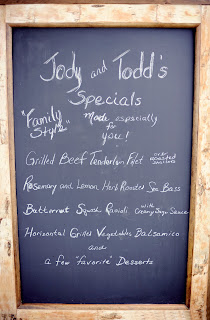 Jody and Todd's
Specials
"Family Style"
Made especially
for
you!
Grilled Beef Tenderloin Filet
Rosemary and Lemon Herb Roasted Sea Bass
Butternut Squash Ravioli with Creamy Sage Sauce
Horizontal Grilled Vegetables Balsamico
and
a few "favorite" Desserts